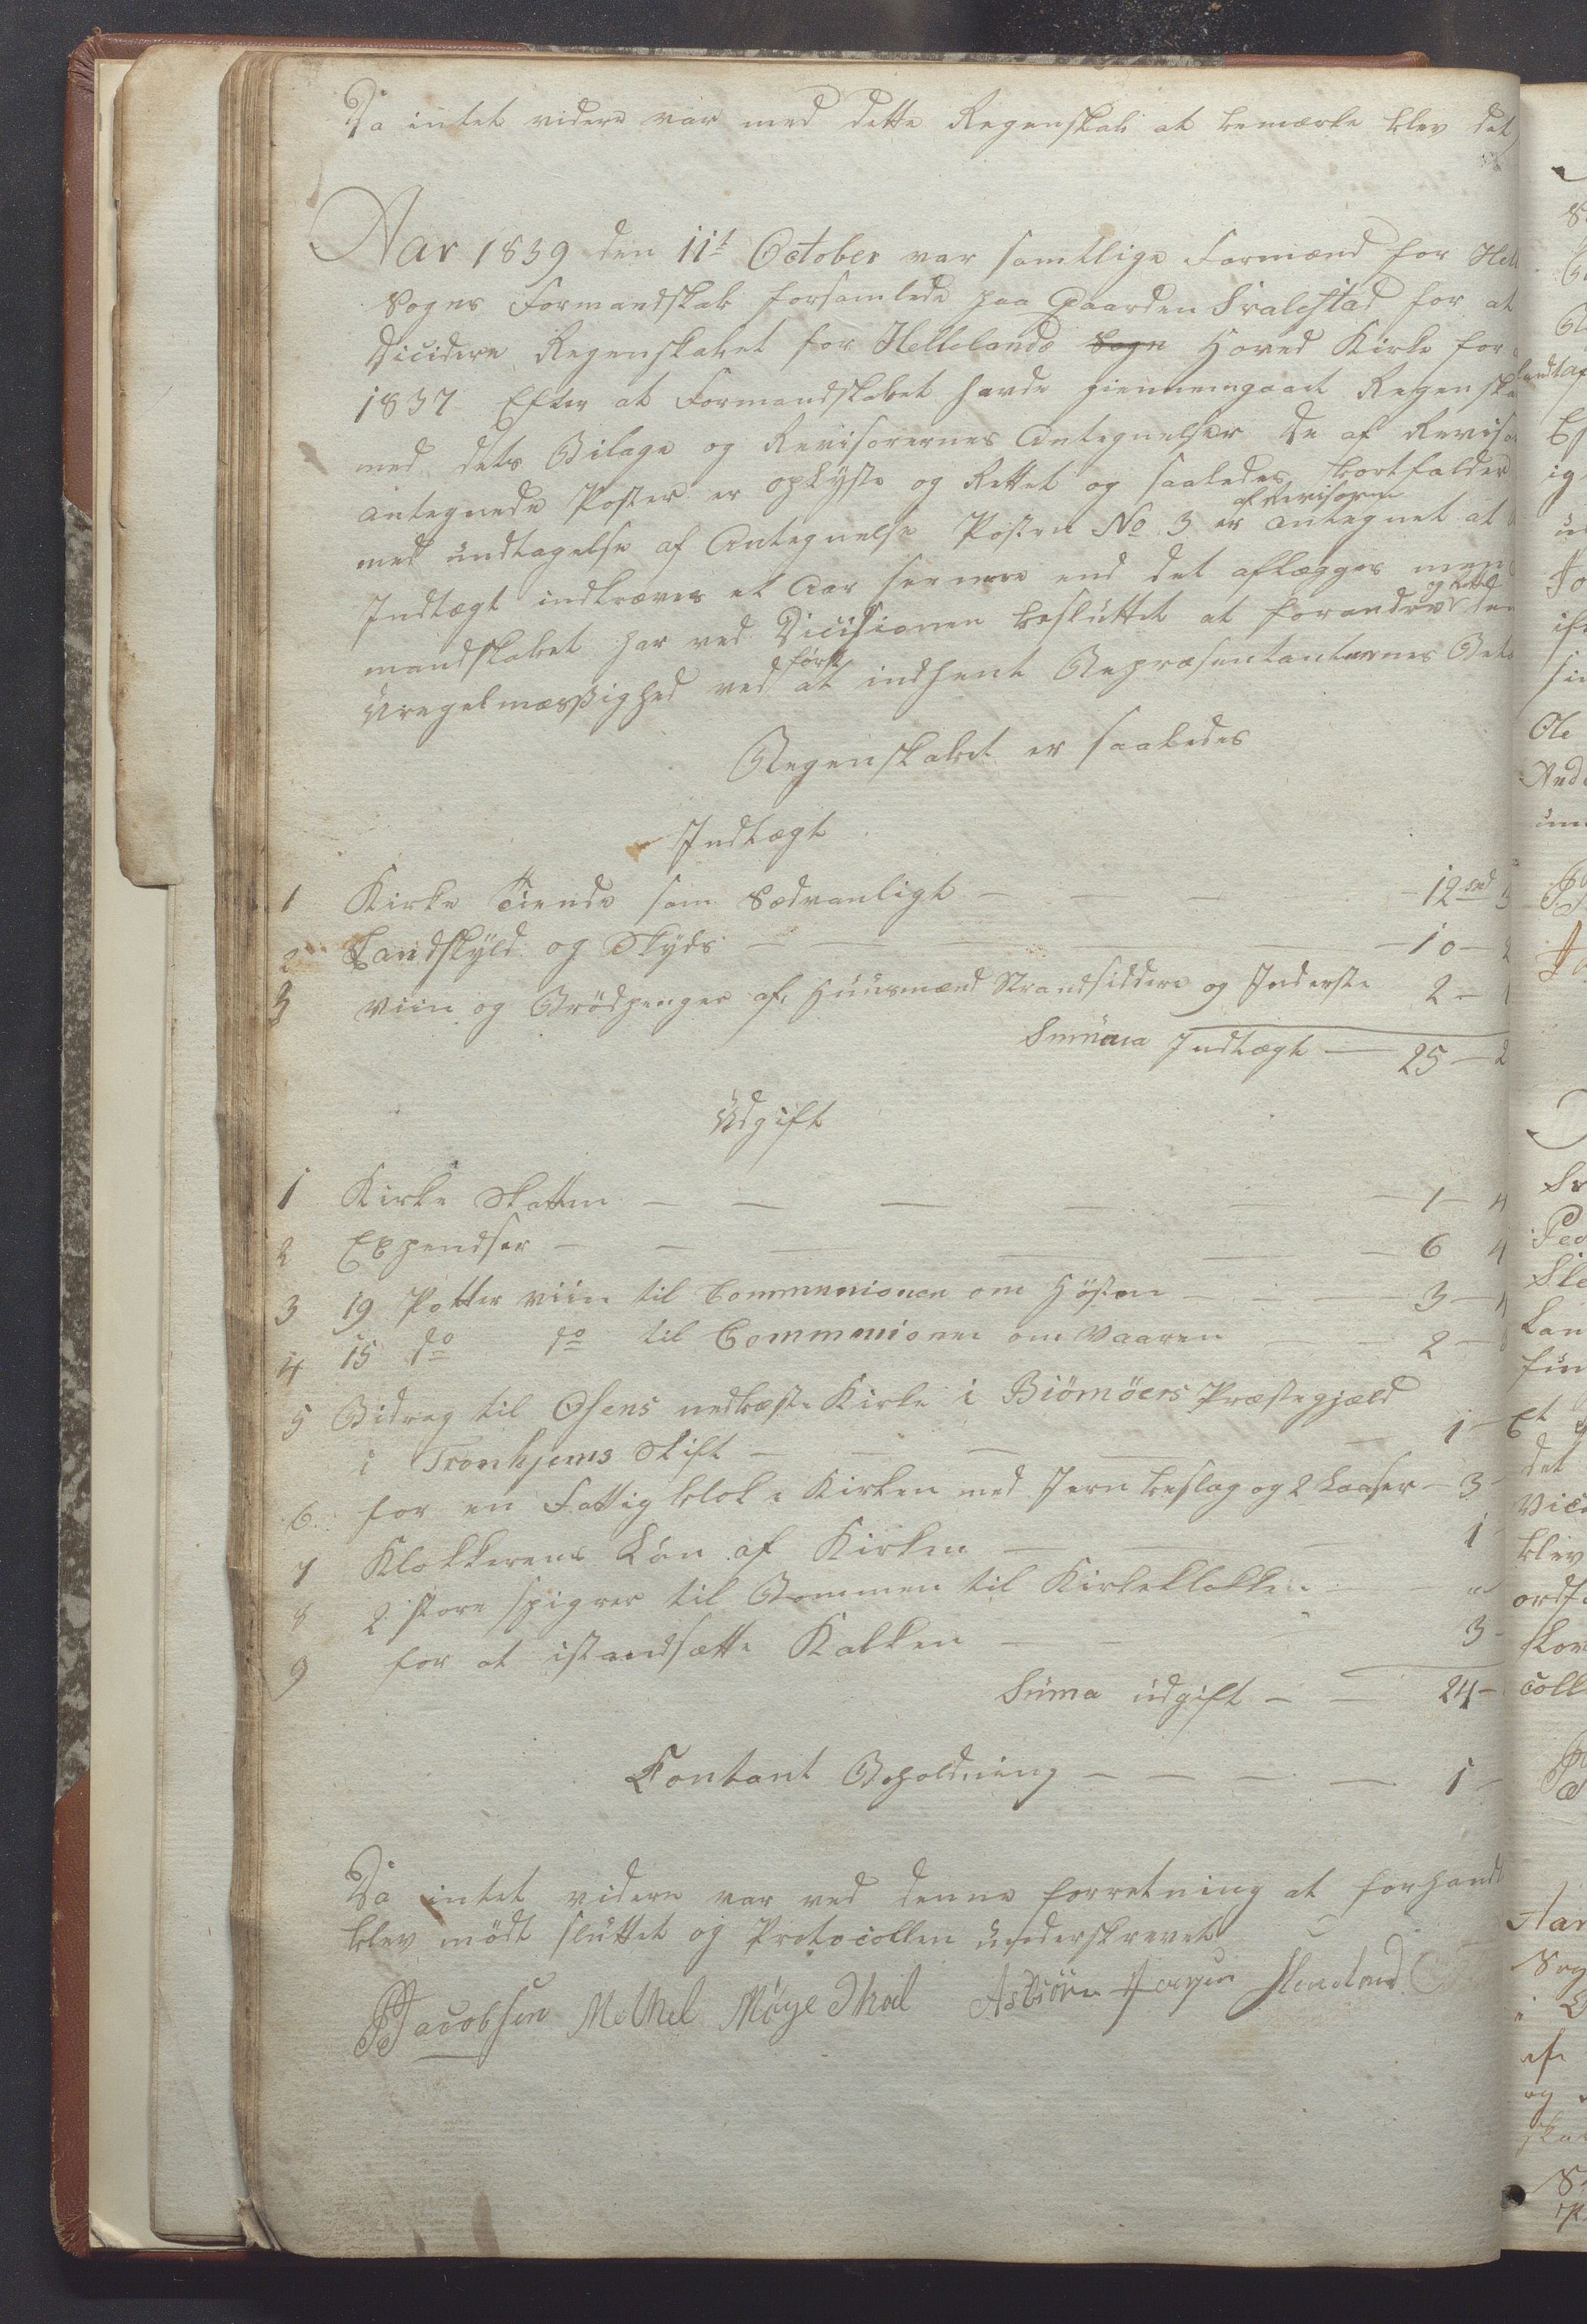 Da intet videre var med dette Regenskab at bemærke blev det
Aar 1839 den 11t October var samtlige Formænd for Hell
Sogns Formandskab forsamlede paa Gaarden Svalestad for at
Dicidere Regenskabet for Hellelands Sogn Hoved Kirke for
1837 Efter at Formandskabet havde giennemgaaet Regenska
med dets Bilage og Revisorernes Antegnelser De af Reviso
antegnede Poster er oplyste og Rettet og saaledes bortfalder
af Revisorne
med undtagelse af Antegnelse Posten No 3 er antegnet at
Indtægt indkræves et Aar sennere end det aflægges men
og Rette
mandskabet har ved Dicisionen besluttet at forandre den
først
Uregelmæssighed ved at indhent Repræsentanternes Bet
Regenskabet er saaledes
Indtægt
1 Kirke Tiende som Sædvanligt — — — 12 spd 3
2 Landskyld og Skyds — — — — 10 — 2
3 Viin og Brödpenger af Huusmænd Strandsiddere og Inderste 2 — 1
Summa Indtægt — 25 — 2
Udgift
1 Kirke Skatten — — — — — 1 — 4
2 Expendser — — — — — 6 4
3 19 Potter viin til Communionen om Hösten — — — 3 — 4
4 15 do do til Communionen om Vaaren — — 2 —
5 Bidrag til Osens nedbæste Kirke i Biörnöers Præstegjæld
i Tronhjems Stift — — — — 1 —
6 for en Fattig blok i Kirken med Jern beslag og 2 Laaser — 3 —
7 Klokkerens Lön af Kirken — — — 1 —
8 2 store Spigrer til Bommen til Kirkeklokken — "
9 for at istandsætte Kalken — — — 3 —
Suma udgift — — 24 —
Contant Beholdning — — — — 1 —
Da intet videre var ved denne forretning at forhandl
blev mödt sluttet og Protocollen underskrevet
PJacobsen Mikkel Möye Asbiörn